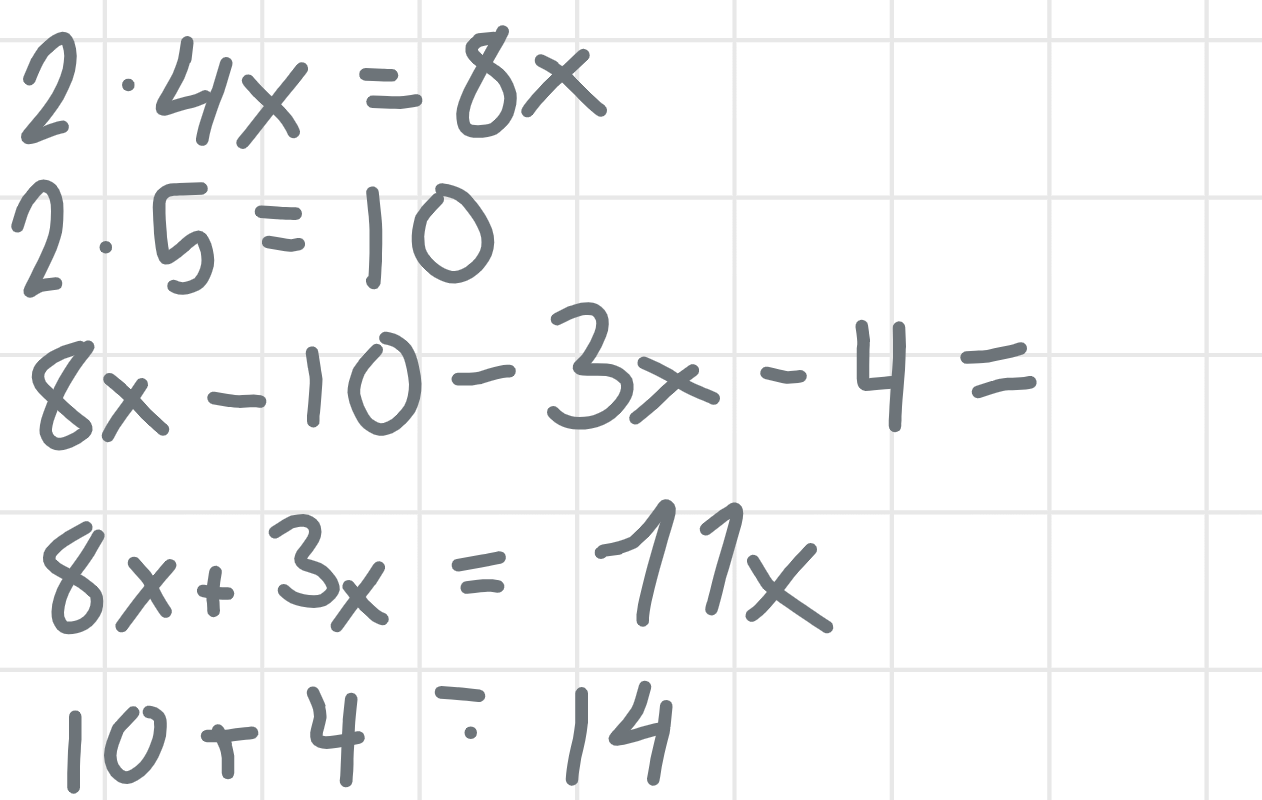 2 · 4x = 8x
2 · 5 = 10
8x - 10 - 3x - 4 =
8x + 3x = 11x
10 + 4 = 14